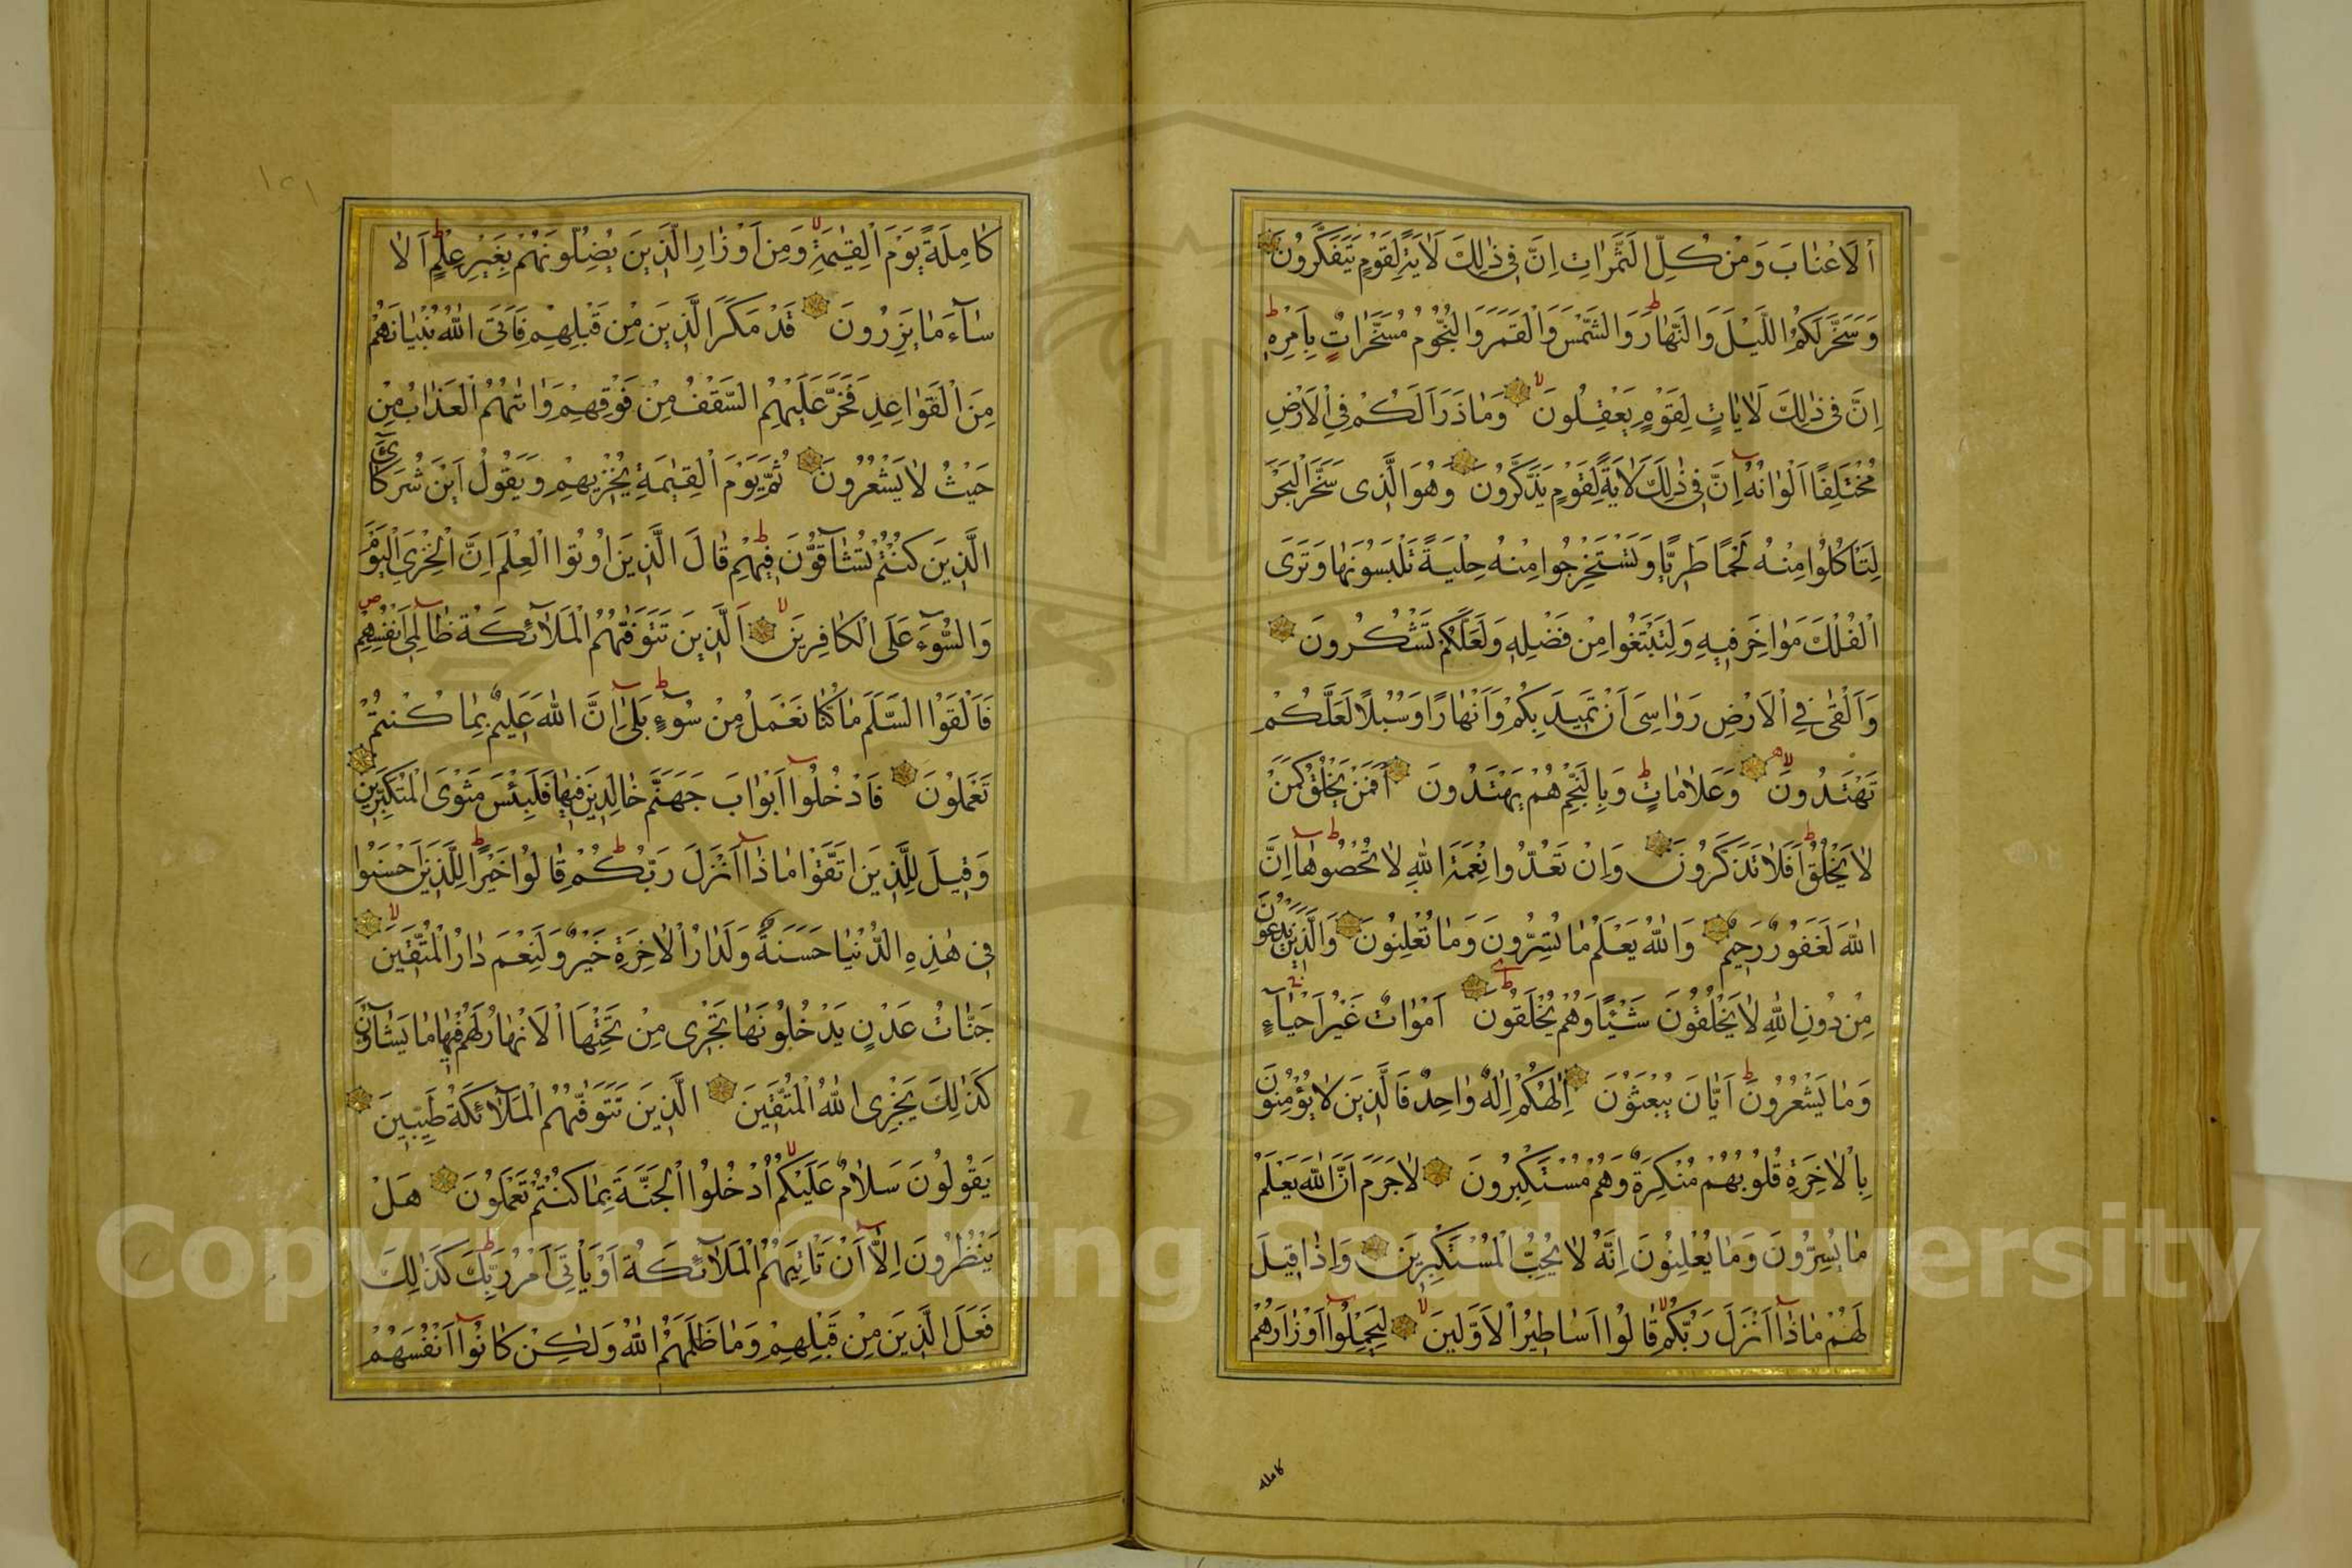 اَلْاَعْنَابَ وَمِنْ كُلِّ الثَّمَرَاتِ اِنَّ فِى ذٰلِكَ لَاٰيَةً لِقَوْمٍ يَتَفَكَّرُونَ
وَسَخَّرَ لَكُمُ اللَّيْلَ وَالنَّهَارَ وَالشَّمْسَ وَالْقَمَرَ وَالنُّجُومُ مُسَخَّرَاتٌ بِاَمْرِهِ
اِنَّ فِى ذٰلِكَ لَاٰيَاتٍ لِقَوْمٍ يَعْقِلُونَ وَمَا ذَرَاَ لَكُمْ فِى الْاَرْضِ
مُخْتَلِفًا اَلْوَانُهُ اِنَّ فِى ذٰلِكَ لَاٰيَةً لِقَوْمٍ يَذَّكَّرُونَ وَهُوَ الَّذِى سَخَّرَ الْبَحْرَ
لِتَاْكُلُوا مِنْهُ لَحْمًا طَرِيًّا وَتَسْتَخْرِجُوا مِنْهُ حِلْيَةً تَلْبَسُونَهَا وَتَرَى
الْفُلْكَ مَوَاخِرَ فِيهِ وَلِتَبْتَغُوا مِنْ فَضْلِهِ وَلَعَلَّكُمْ تَشْكُرُونَ
وَاَلْقٰى فِى الْاَرْضِ رَوَاسِىَ اَنْ تَمِيدَ بِكُمْ وَاَنْهَارًا وَسُبُلًا لَعَلَّكُمْ
تَهْتَدُونَ وَعَلَامَاتٍ وَبِالنَّجْمِ هُمْ يَهْتَدُونَ اَفَمَنْ يَخْلُقُ كَمَنْ
لَا يَخْلُقُ اَفَلَا تَذَكَّرُونَ وَاِنْ تَعُدُّوا نِعْمَةَ اللّٰهِ لَا تُحْصُوهَا اِنَّ
اللّٰهَ لَغَفُورٌ رَحِيمٌ وَاللّٰهُ يَعْلَمُ مَا تُسِرُّونَ وَمَا تُعْلِنُونَ وَالَّذِينَ يَدْعُونَ
مِنْ دُونِ اللّٰهِ لَا يَخْلُقُونَ شَيْئًا وَهُمْ يُخْلَقُونَ اَمْوَاتٌ غَيْرُ اَحْيَآءٍ
وَمَا يَشْعُرُونَ اَيَّانَ يُبْعَثُونَ اِلٰهُكُمْ اِلٰهٌ وَاحِدٌ فَالَّذِينَ لَا يُؤْمِنُونَ
بِالْاٰخِرَةِ قُلُوبُهُمْ مُنْكِرَةٌ وَهُمْ مُسْتَكْبِرُونَ لَا جَرَمَ اَنَّ اللّٰهَ يَعْلَمُ
مَا يُسِرُّونَ وَمَا يُعْلِنُونَ اِنَّهُ لَا يُحِبُّ الْمُسْتَكْبِرِينَ وَاِذَا قِيلَ
لَهُمْ مَاذَا اَنْزَلَ رَبُّكُمْ قَالُوا اَسَاطِيرُ الْاَوَّلِينَ لِيَحْمِلُوا اَوْزَارَهُمْ
كاملة
كَامِلَةً يَوْمَ الْقِيٰمَةِ وَمِنْ اَوْزَارِ الَّذِينَ يُضِلُّونَهُمْ بِغَيْرِ عِلْمٍ اَلَا
سَآءَ مَا يَزِرُونَ قَدْ مَكَرَ الَّذِينَ مِنْ قَبْلِهِمْ فَاَتَى اللّٰهُ بُنْيَانَهُمْ
مِنَ الْقَوَاعِدِ فَخَرَّ عَلَيْهِمُ السَّقْفُ مِنْ فَوْقِهِمْ وَاَتٰيهُمُ الْعَذَابُ مِنْ
حَيْثُ لَا يَشْعُرُونَ ثُمَّ يَوْمَ الْقِيٰمَةِ يُخْزِيهِمْ وَيَقُولُ اَيْنَ شُرَكَآئِىَ
الَّذِينَ كُنْتُمْ تُشَآقُّونَ فِيهِمْ قَالَ الَّذِينَ اُوتُوا الْعِلْمَ اِنَّ الْخِزْىَ الْيَوْمَ
وَالسُّوٓءَ عَلَى الْكَافِرِينَ اَلَّذِينَ تَتَوَفّٰيهُمُ الْمَلَآئِكَةُ ظَالِمِى اَنْفُسِهِمْ
فَاَلْقَوُا السَّلَمَ مَا كُنَّا نَعْمَلُ مِنْ سُوٓءٍ بَلٰى اِنَّ اللّٰهَ عَلِيمٌ بِمَا كُنْتُمْ
تَعْمَلُونَ فَادْخُلُوا اَبْوَابَ جَهَنَّمَ خَالِدِينَ فِيهَا فَلَبِئْسَ مَثْوَى الْمُتَكَبِّرِينَ
وَقِيلَ لِلَّذِينَ اتَّقَوْا مَاذَا اَنْزَلَ رَبُّكُمْ قَالُوا خَيْرًا لِلَّذِينَ اَحْسَنُوا
فِى هٰذِهِ الدُّنْيَا حَسَنَةٌ وَلَدَارُ الْاٰخِرَةِ خَيْرٌ وَلَنِعْمَ دَارُ الْمُتَّقِينَ
جَنَّاتُ عَدْنٍ يَدْخُلُونَهَا تَجْرِى مِنْ تَحْتِهَا الْاَنْهَارُ لَهُمْ فِيهَا مَا يَشَآؤُنَ
كَذٰلِكَ يَجْزِى اللّٰهُ الْمُتَّقِينَ الَّذِينَ تَتَوَفّٰيهُمُ الْمَلَآئِكَةُ طَيِّبِينَ
يَقُولُونَ سَلَامٌ عَلَيْكُمُ ادْخُلُوا الْجَنَّةَ بِمَا كُنْتُمْ تَعْمَلُونَ هَلْ
يَنْظُرُونَ اِلَّا اَنْ تَاْتِيَهُمُ الْمَلَآئِكَةُ اَوْ يَاْتِىَ اَمْرُ رَبِّكَ كَذٰلِكَ
فَعَلَ الَّذِينَ مِنْ قَبْلِهِمْ وَمَا ظَلَمَهُمُ اللّٰهُ وَلٰكِنْ كَانُوا اَنْفُسَهُمْ
١٢١
Copyright © King Saud University